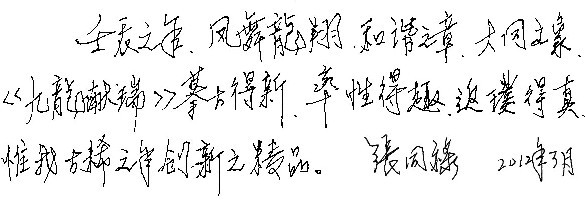 壬辰之年、凤舞龍翔、和谐之章、大同之象、
《九龍献瑞》摹古得新、率性得趣、返璞得真、
惟我古稀之年创新之精品。 張同禄 2012年3月